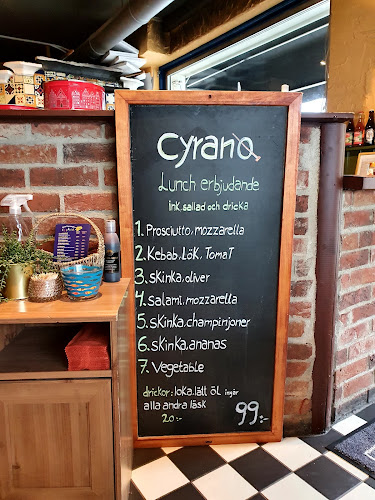 cyrano
Lunch erbjudande
ink. sallad och dricka
1. Prosciutto, mozzarella
2. Kebab, Lök, Tomat
3. skinka, oliver
4. Salami, mozzarella
5. skinka, champinjoner
6. skinka, ananas
7. Vegetable
drickor: loka. lätt öl ingår
alla andra läsk
20:-
99:-